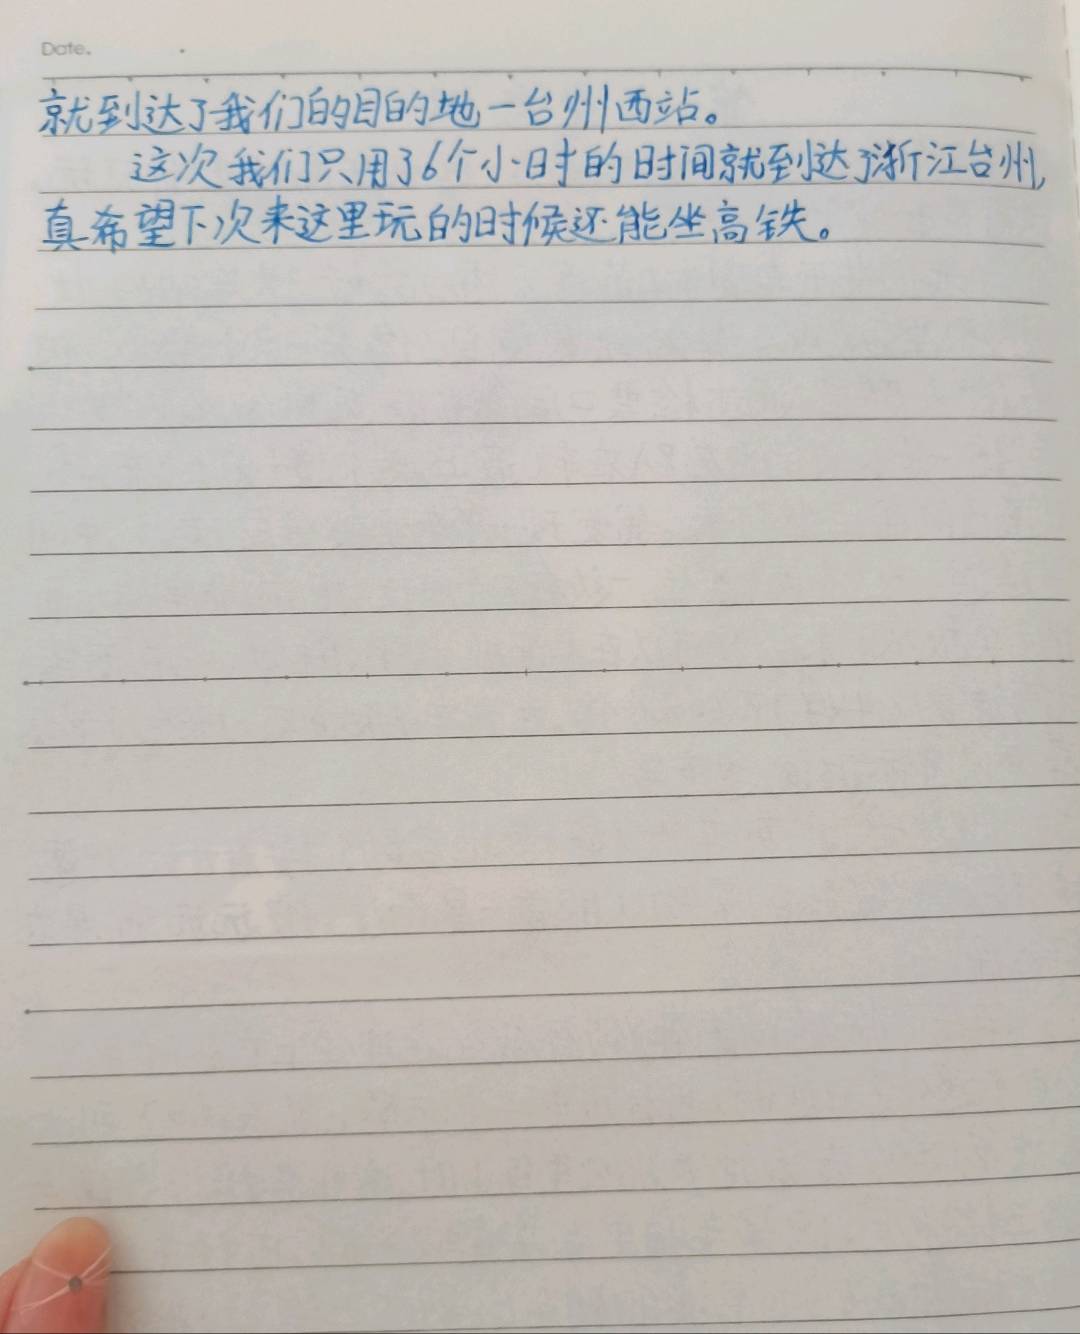 Date.
就到达了我们的目的地一台州西站。
这次我们只用了6个小时的时间就到达了浙江台州,
真希望下次来这里玩的时候还能坐高铁。